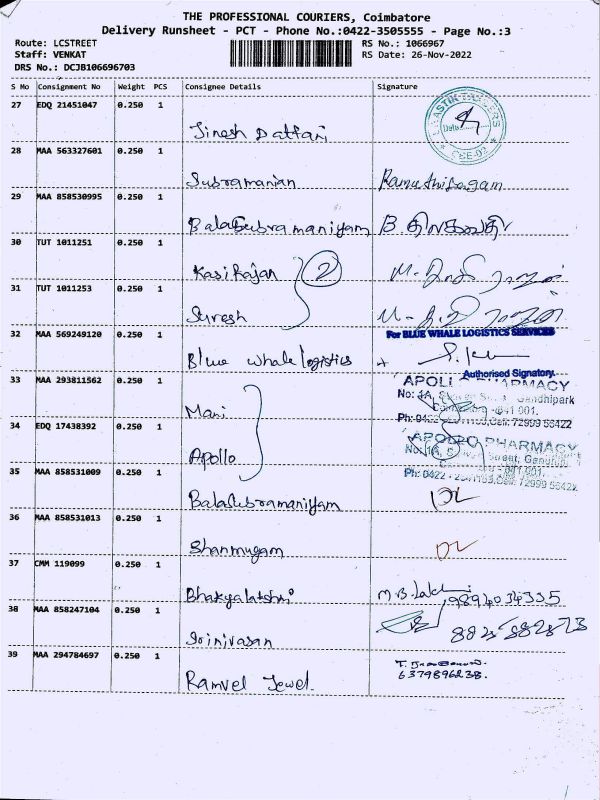 THE PROFESSIONAL COURIERS, Coimbatore
Delivery Runsheet - PCT - Phone No.:0422-3505555 - Page No.:3
Route: LCSTREET RS No.: 1066967
Staff: VENKAT RS Date: 26-Nov-2022
DRS No.: DCJB106696703
S No Consignment No Weight PCS Consignee Details Signature
27 EDQ 21451047 0.250 1
Jinesh Dattari
28 MAA 563327601 0.250 1
Subramanian
29 MAA 858530995 0.250 1
Balasubramaniyam B. திலகவதி
30 TUT 1011251 0.250 1
Kasirajan 2
31 TUT 1011253 0.250 1
Suresh
32 MAA 569249120 0.250 1 For BLUE WHALE LOGISTICS SERVICES
Blue whale logistics
Authorised Signatory.
33 MAA 293811562 0.250 1 PHARMACY
No: 1A, Gandhipark
Mani 641 001.
34 EDQ 17438392 0.250 1 Ph: 0422 Cell: 72999 56422
APOLLO PHARMACY
Apollo
35 MAA 858531009 0.250 1 Ph: 0422 - Cell: 72999 56422
Balasubramaniyam DL
36 MAA 858531013 0.250 1
Shanmugam DL
37 CMM 119099 0.250 1
Bhakyalatshmi M.B. Lakshmi 9894034335
38 MAA 858247104 0.250 1
Srinivasan
39 MAA 294784697 0.250 1
6379896238.
Ramvel Jewel.